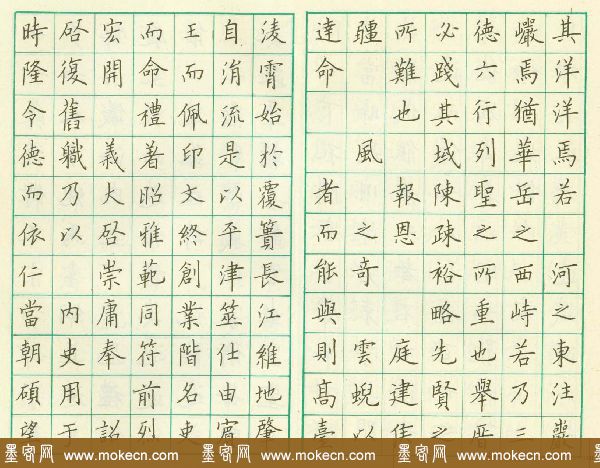 其洋洋焉若河之東注巖
巖焉猶華岳之西峙若乃三
德六行列聖之所重也舉
必踐其域陳疎裕略先賢之
所難也報恩庭建
疆風之奇雲蜺以
達命者而能與則高臺
淩霄始於覆簣長江維地肇
自涓流是以平津筮仕由
王而佩印文終創業階名史
而命禮著昭雅範同符前烈
宏開義大啓崇庸奉詔
啓復舊軄乃以內史用于
時隆令德而依仁當朝碩望
墨客网 www.mokecn.com 墨客网 www.mokecn.com 墨客网 www.mokecn.com